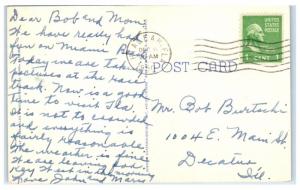 Dear Bob and Mom:
We have really had
fun on Miami Beach
Today we are taking
pictures at the race
track. Now is a good
time to visit Fla.
It is not so crowded
and everything is
fairly reasonable.
The weather is fine
We are leaving for
Key West in the morning
Love John and Mary
POST CARD
UNITED STATES
POSTAGE
1 CENT 1
Mr. Bob Burtschi
1004 E. Main St.
Decatur
Ill.